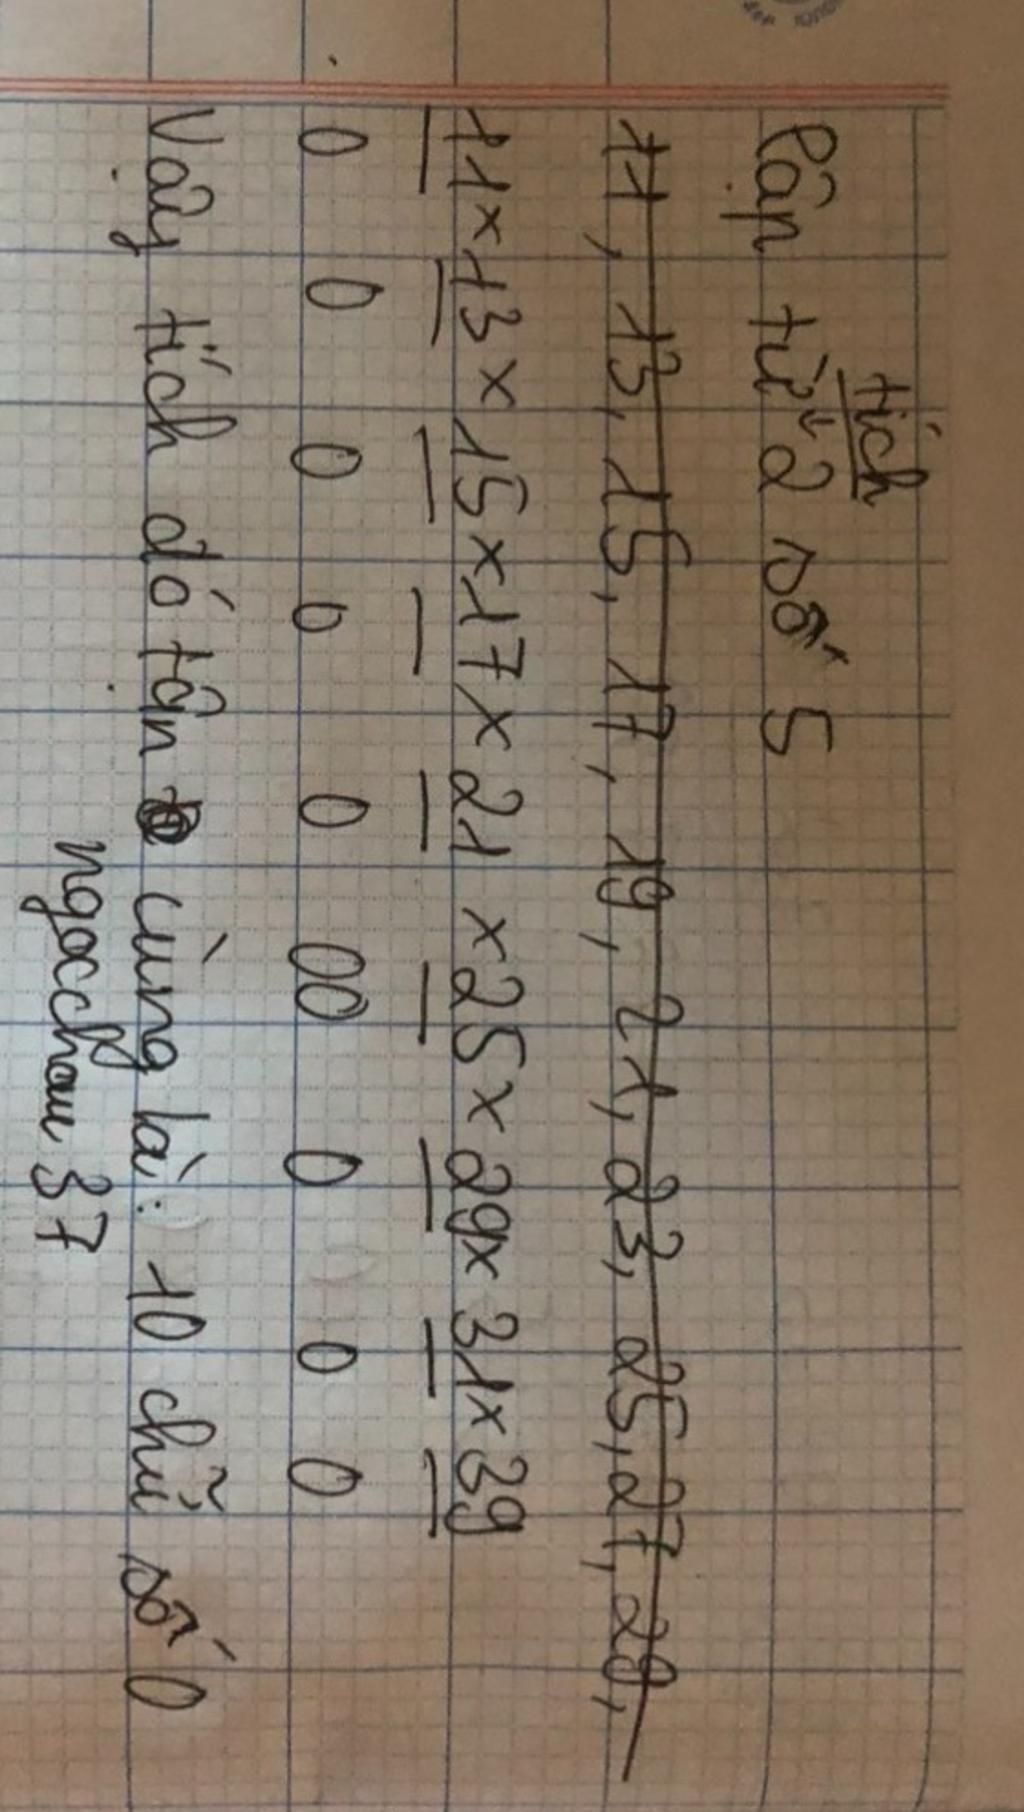 tích
lập từ 2 số 5
11, 13, 15, 17, 19, 21, 23, 25, 27, 29,
11 x 13 x 15 x 17 x 21 x 25 x 29 x 31 x 39
0 0 0 0 0 00 0 0 0
Vậy tích đó tận cùng là: 10 chữ số 0
ngocchau 37